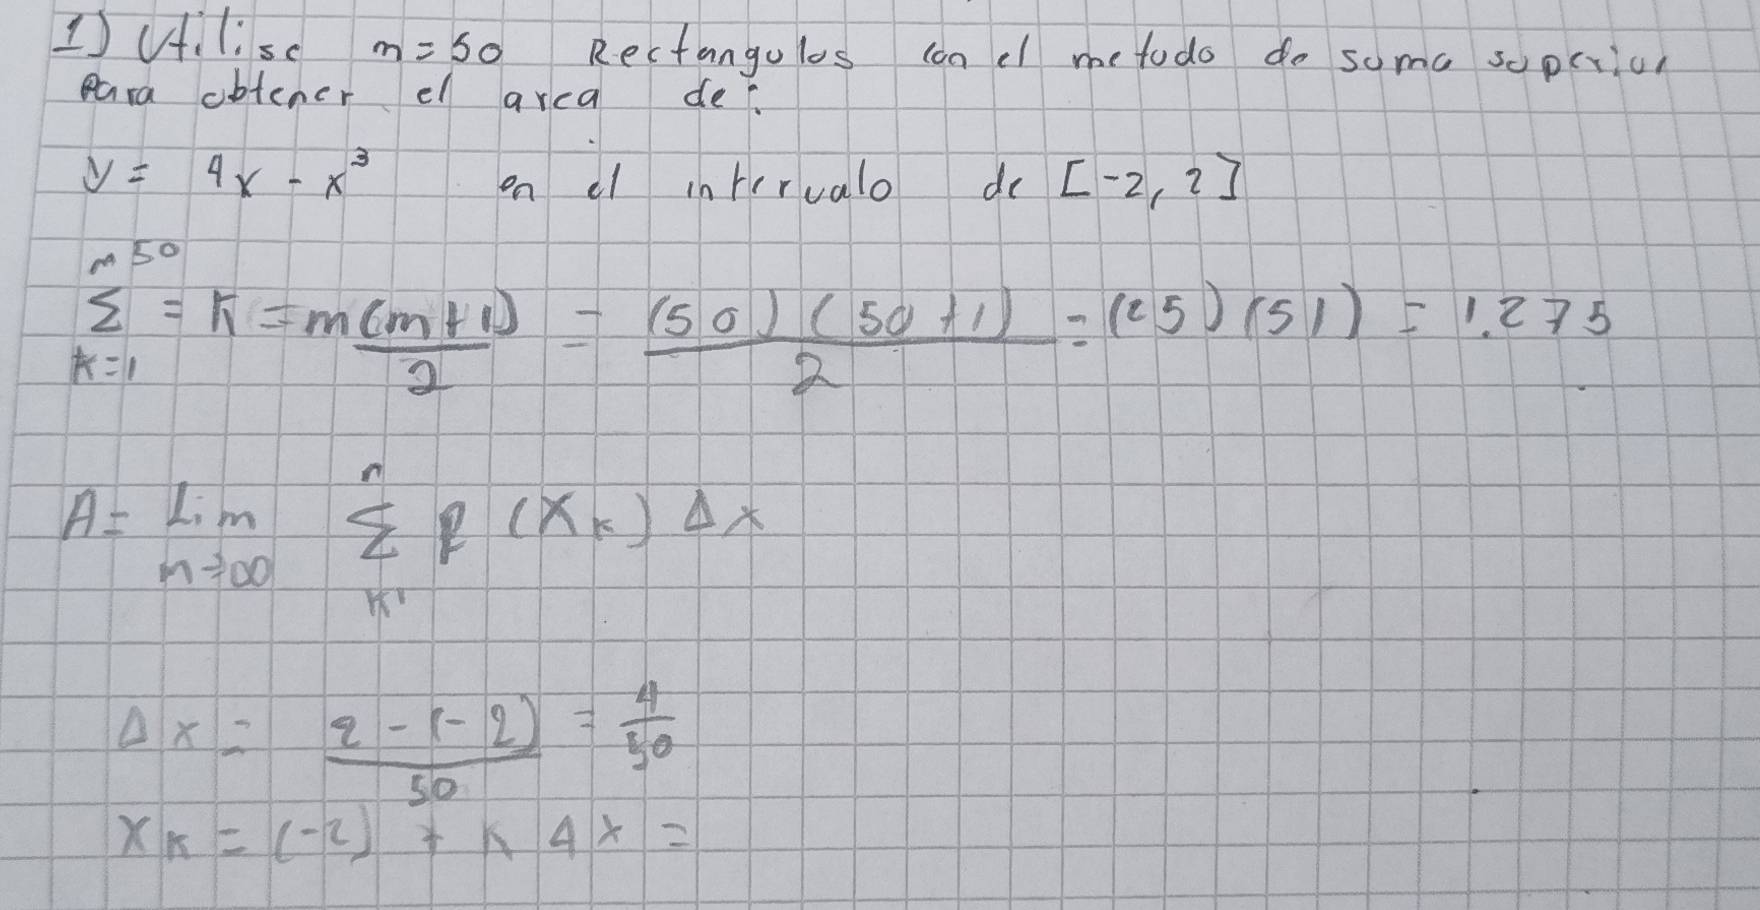 1) Utilise n=50 Rectangulos con el metodo de suma superior
Para obtener el area de:
y = 4x - x³ en el intervalo de [-2, 2]
n 50
Σ = K = n(n+1)/2 = (50)(50+1)/2 = (25)(51) = 1.275
K=1
n
A= Lim Σ f (Xk) Δx
n→∞ K1
Δx = 2-(-2)/50 = 4/50
Xk = (-2) + K Δx =